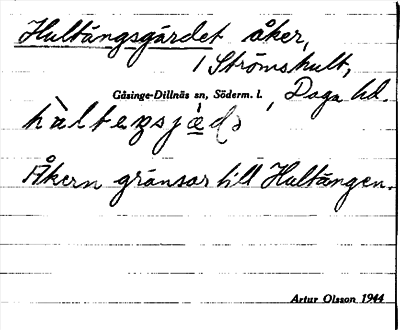 Hultängsgärdet åker,
1 Strömshult,
Gåsinge-Dillnäs sn, Söderm. l. , Daga hd.
Åkern gränsar till Hultängen.
Artur Olsson 1944